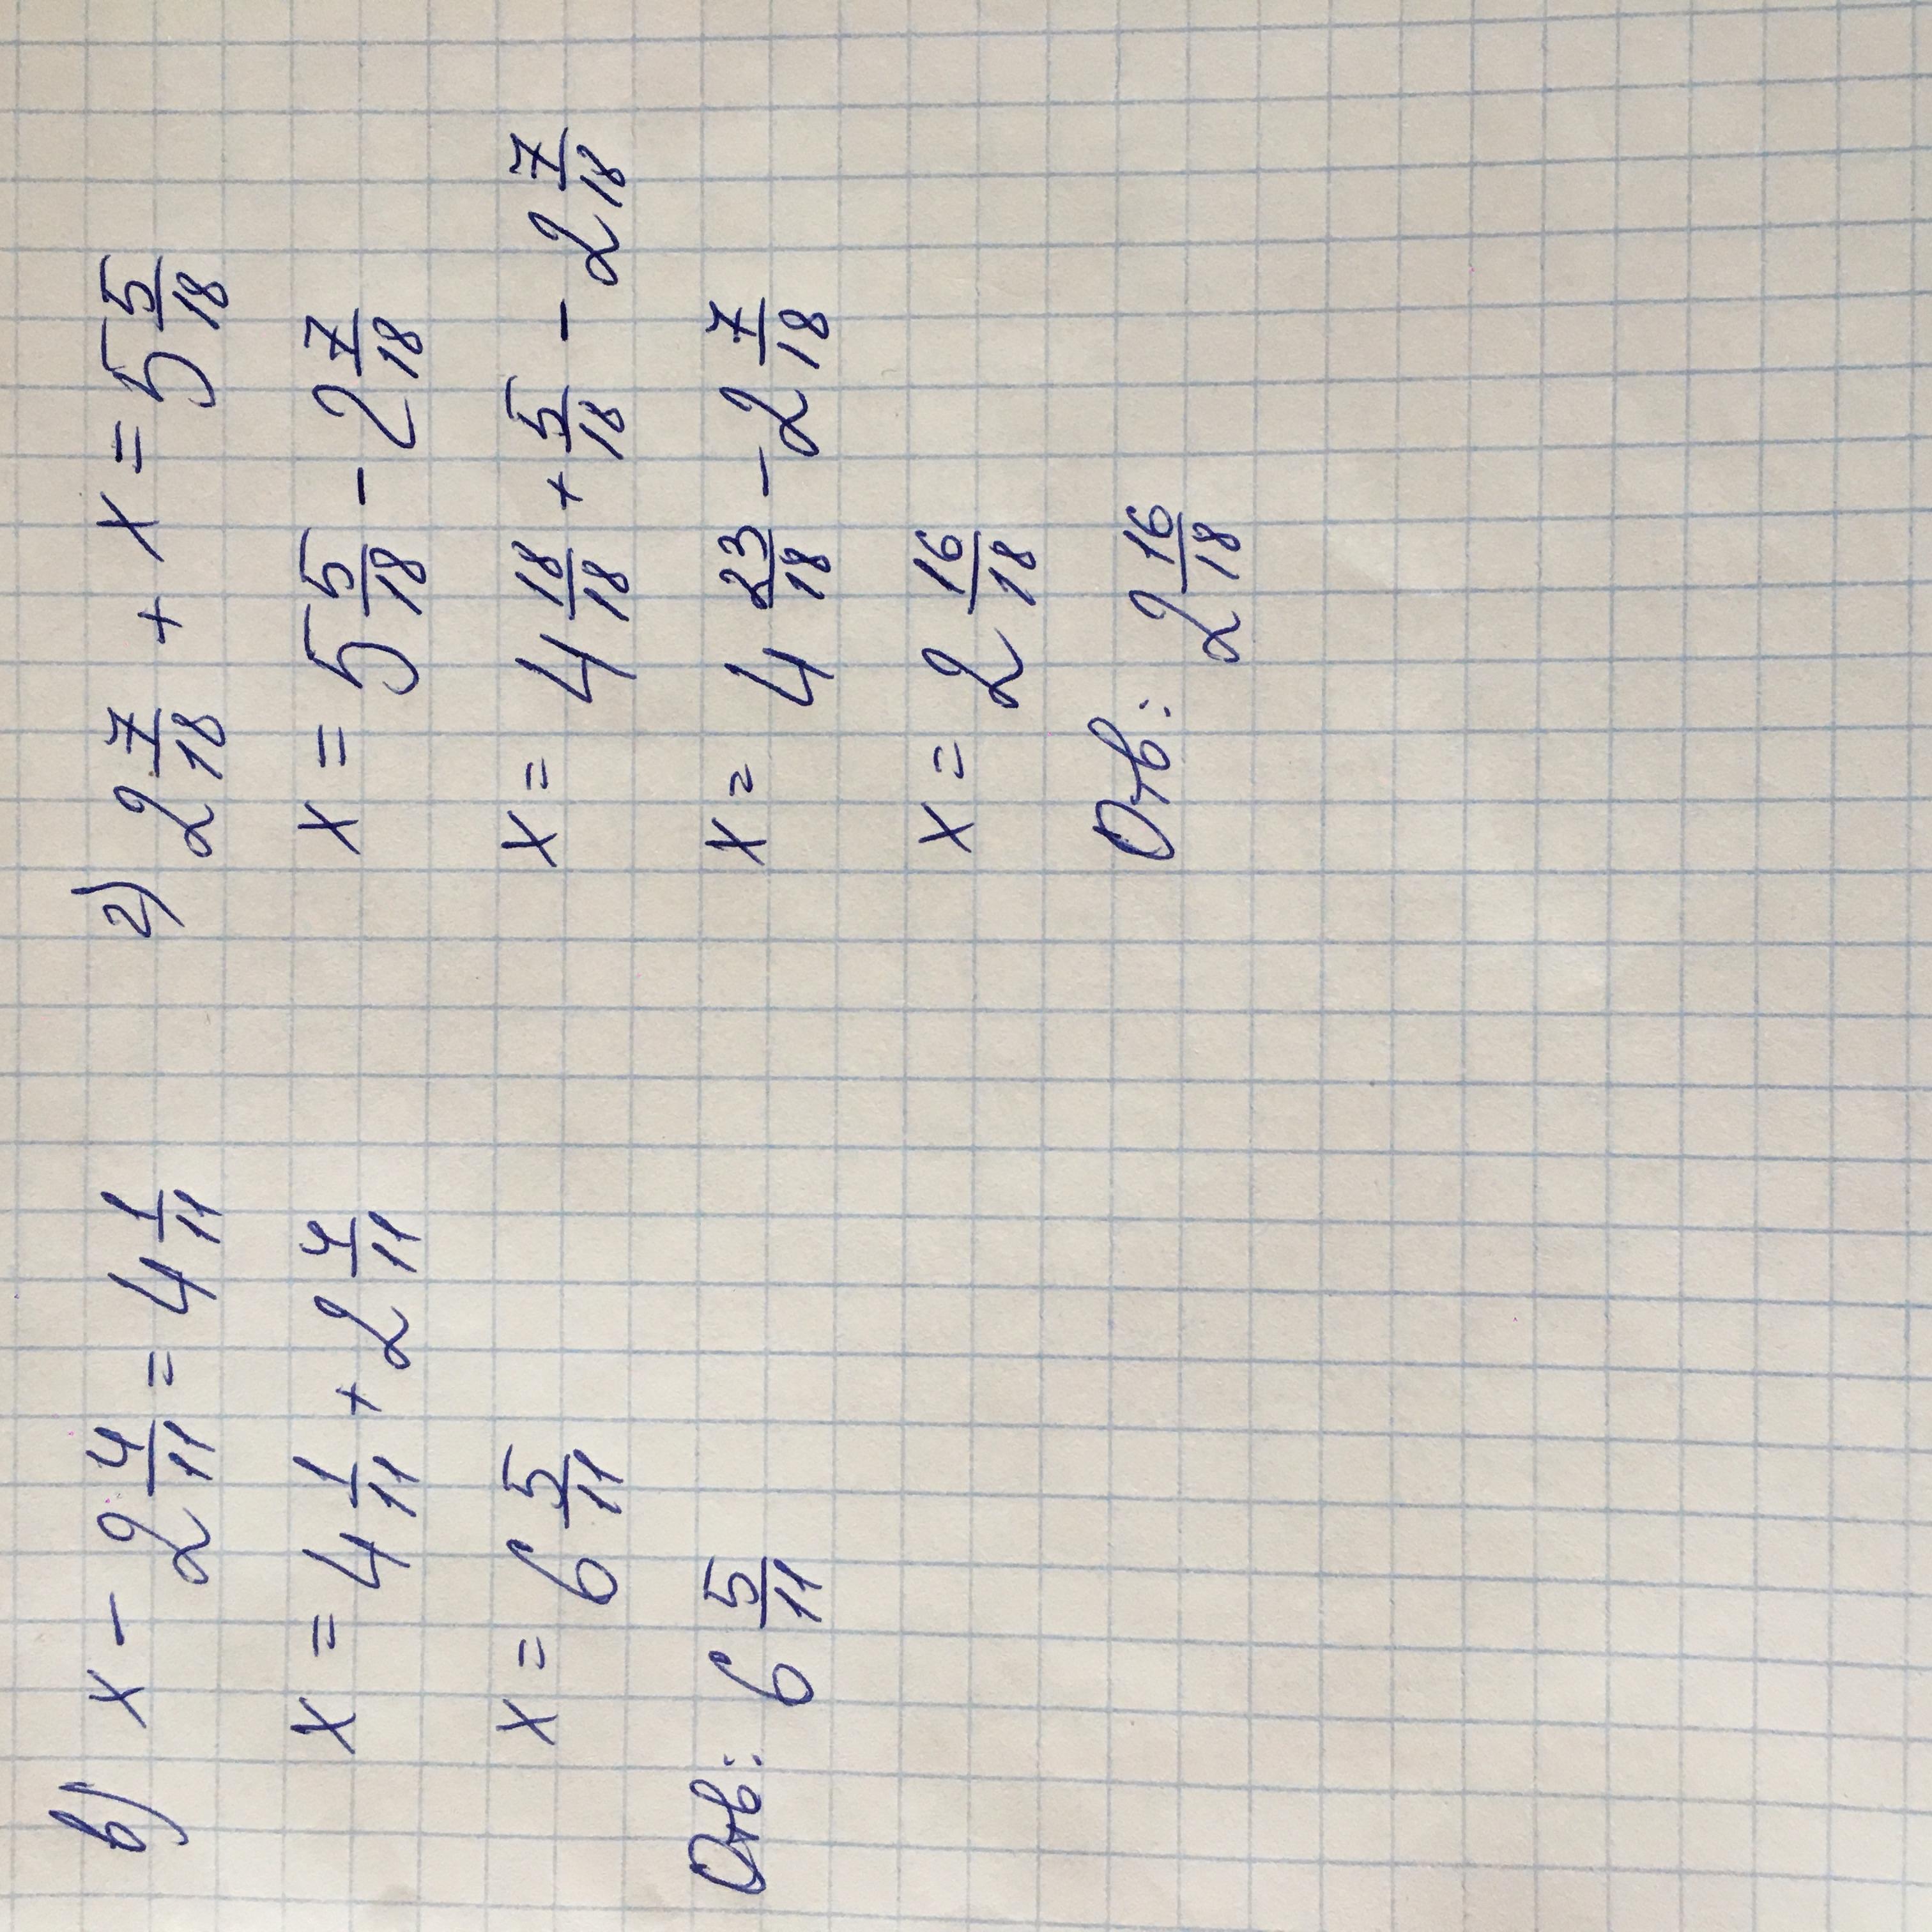 в) x - 2 4/11 = 4 1/11
x = 4 1/11 + 2 4/11
x = 6 5/11
Отв: 6 5/11
г) 2 7/18 + x = 5 5/18
x = 5 5/18 - 2 7/18
x = 4 18/18 + 5/18 - 2 7/18
x = 4 23/18 - 2 7/18
x = 2 16/18
Отв: 2 16/18